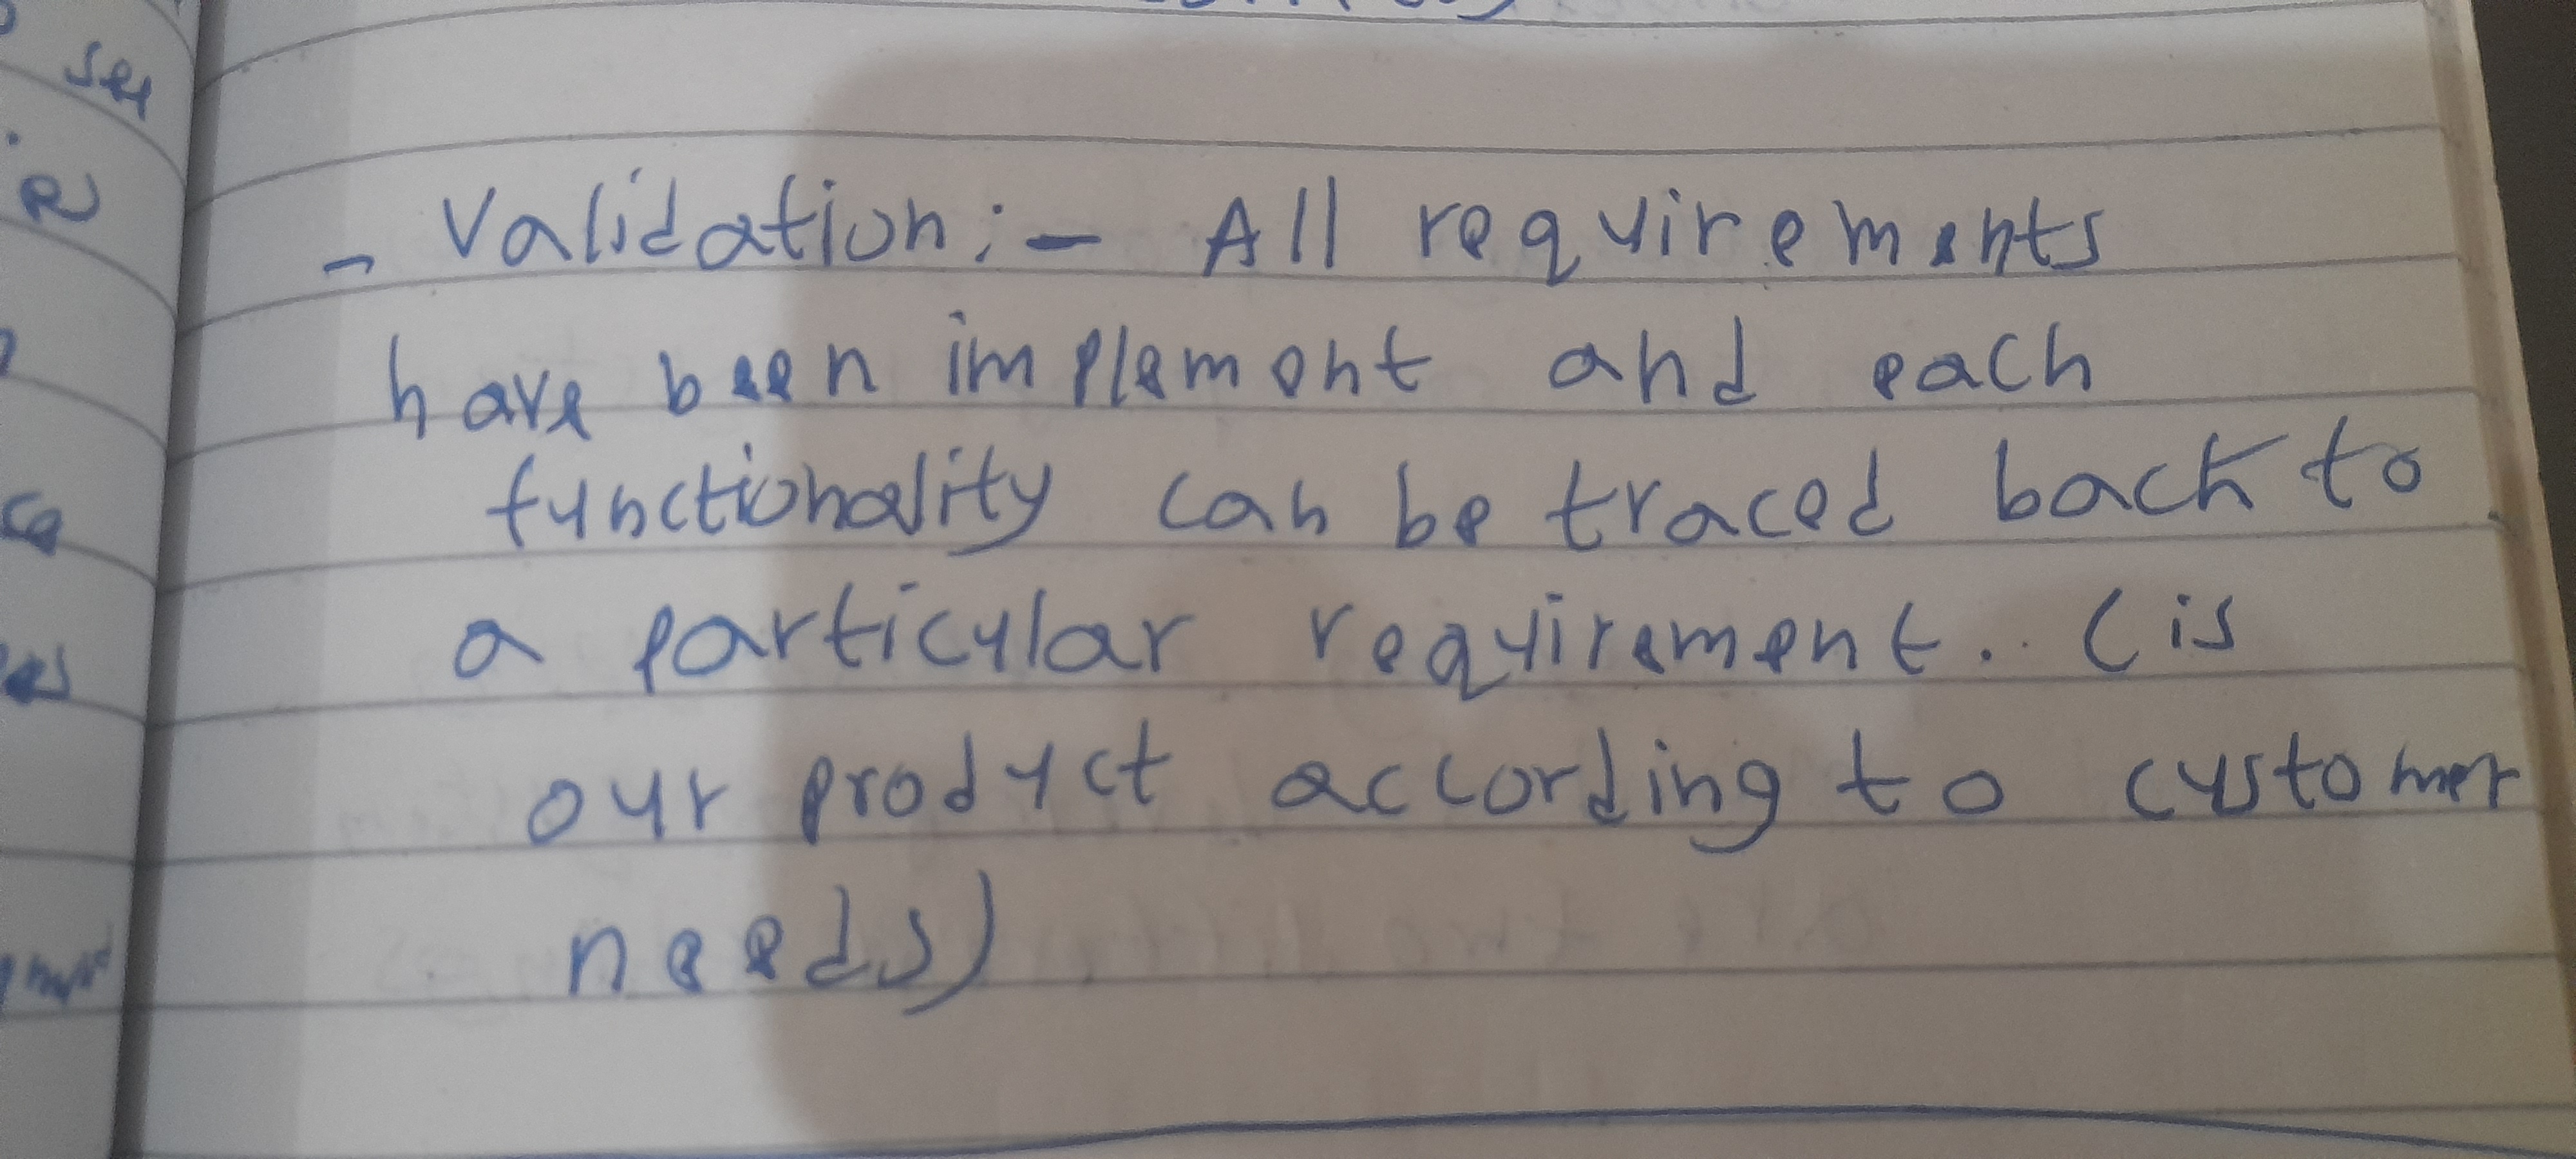 - Validation :- All requirements
have been implement and each
functionality can be traced back to
a particular requirement.. (is
our product according to customer
needs)